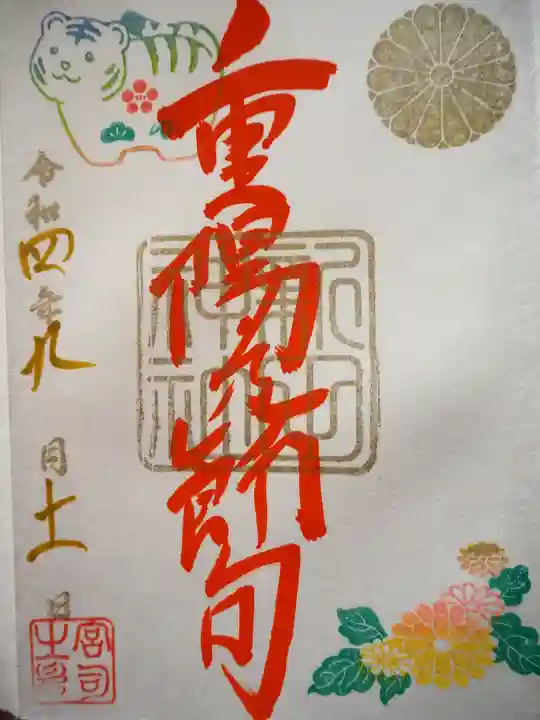 重陽之節句
令和四年九月十一日
宮司之印